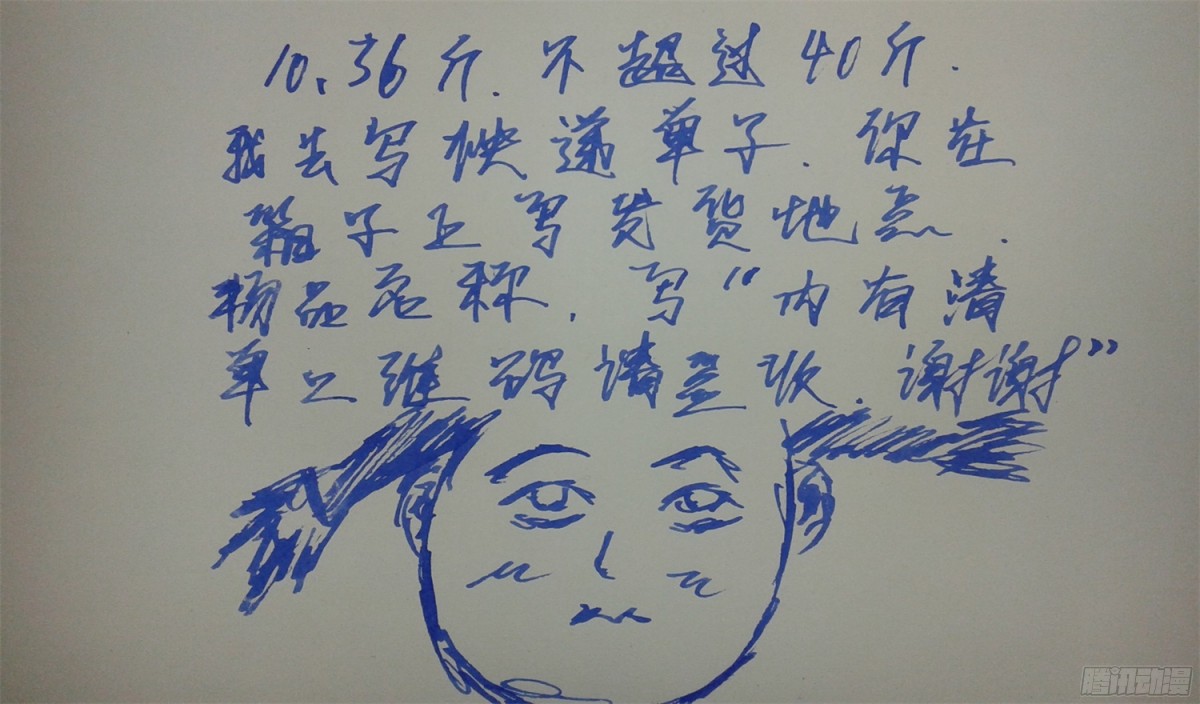 10、36斤.不超过40斤.
我去写快递单子.你在
箱子上写发货地点.
物品名称.写“内有清
单二维码请查收.谢谢”
腾讯动漫